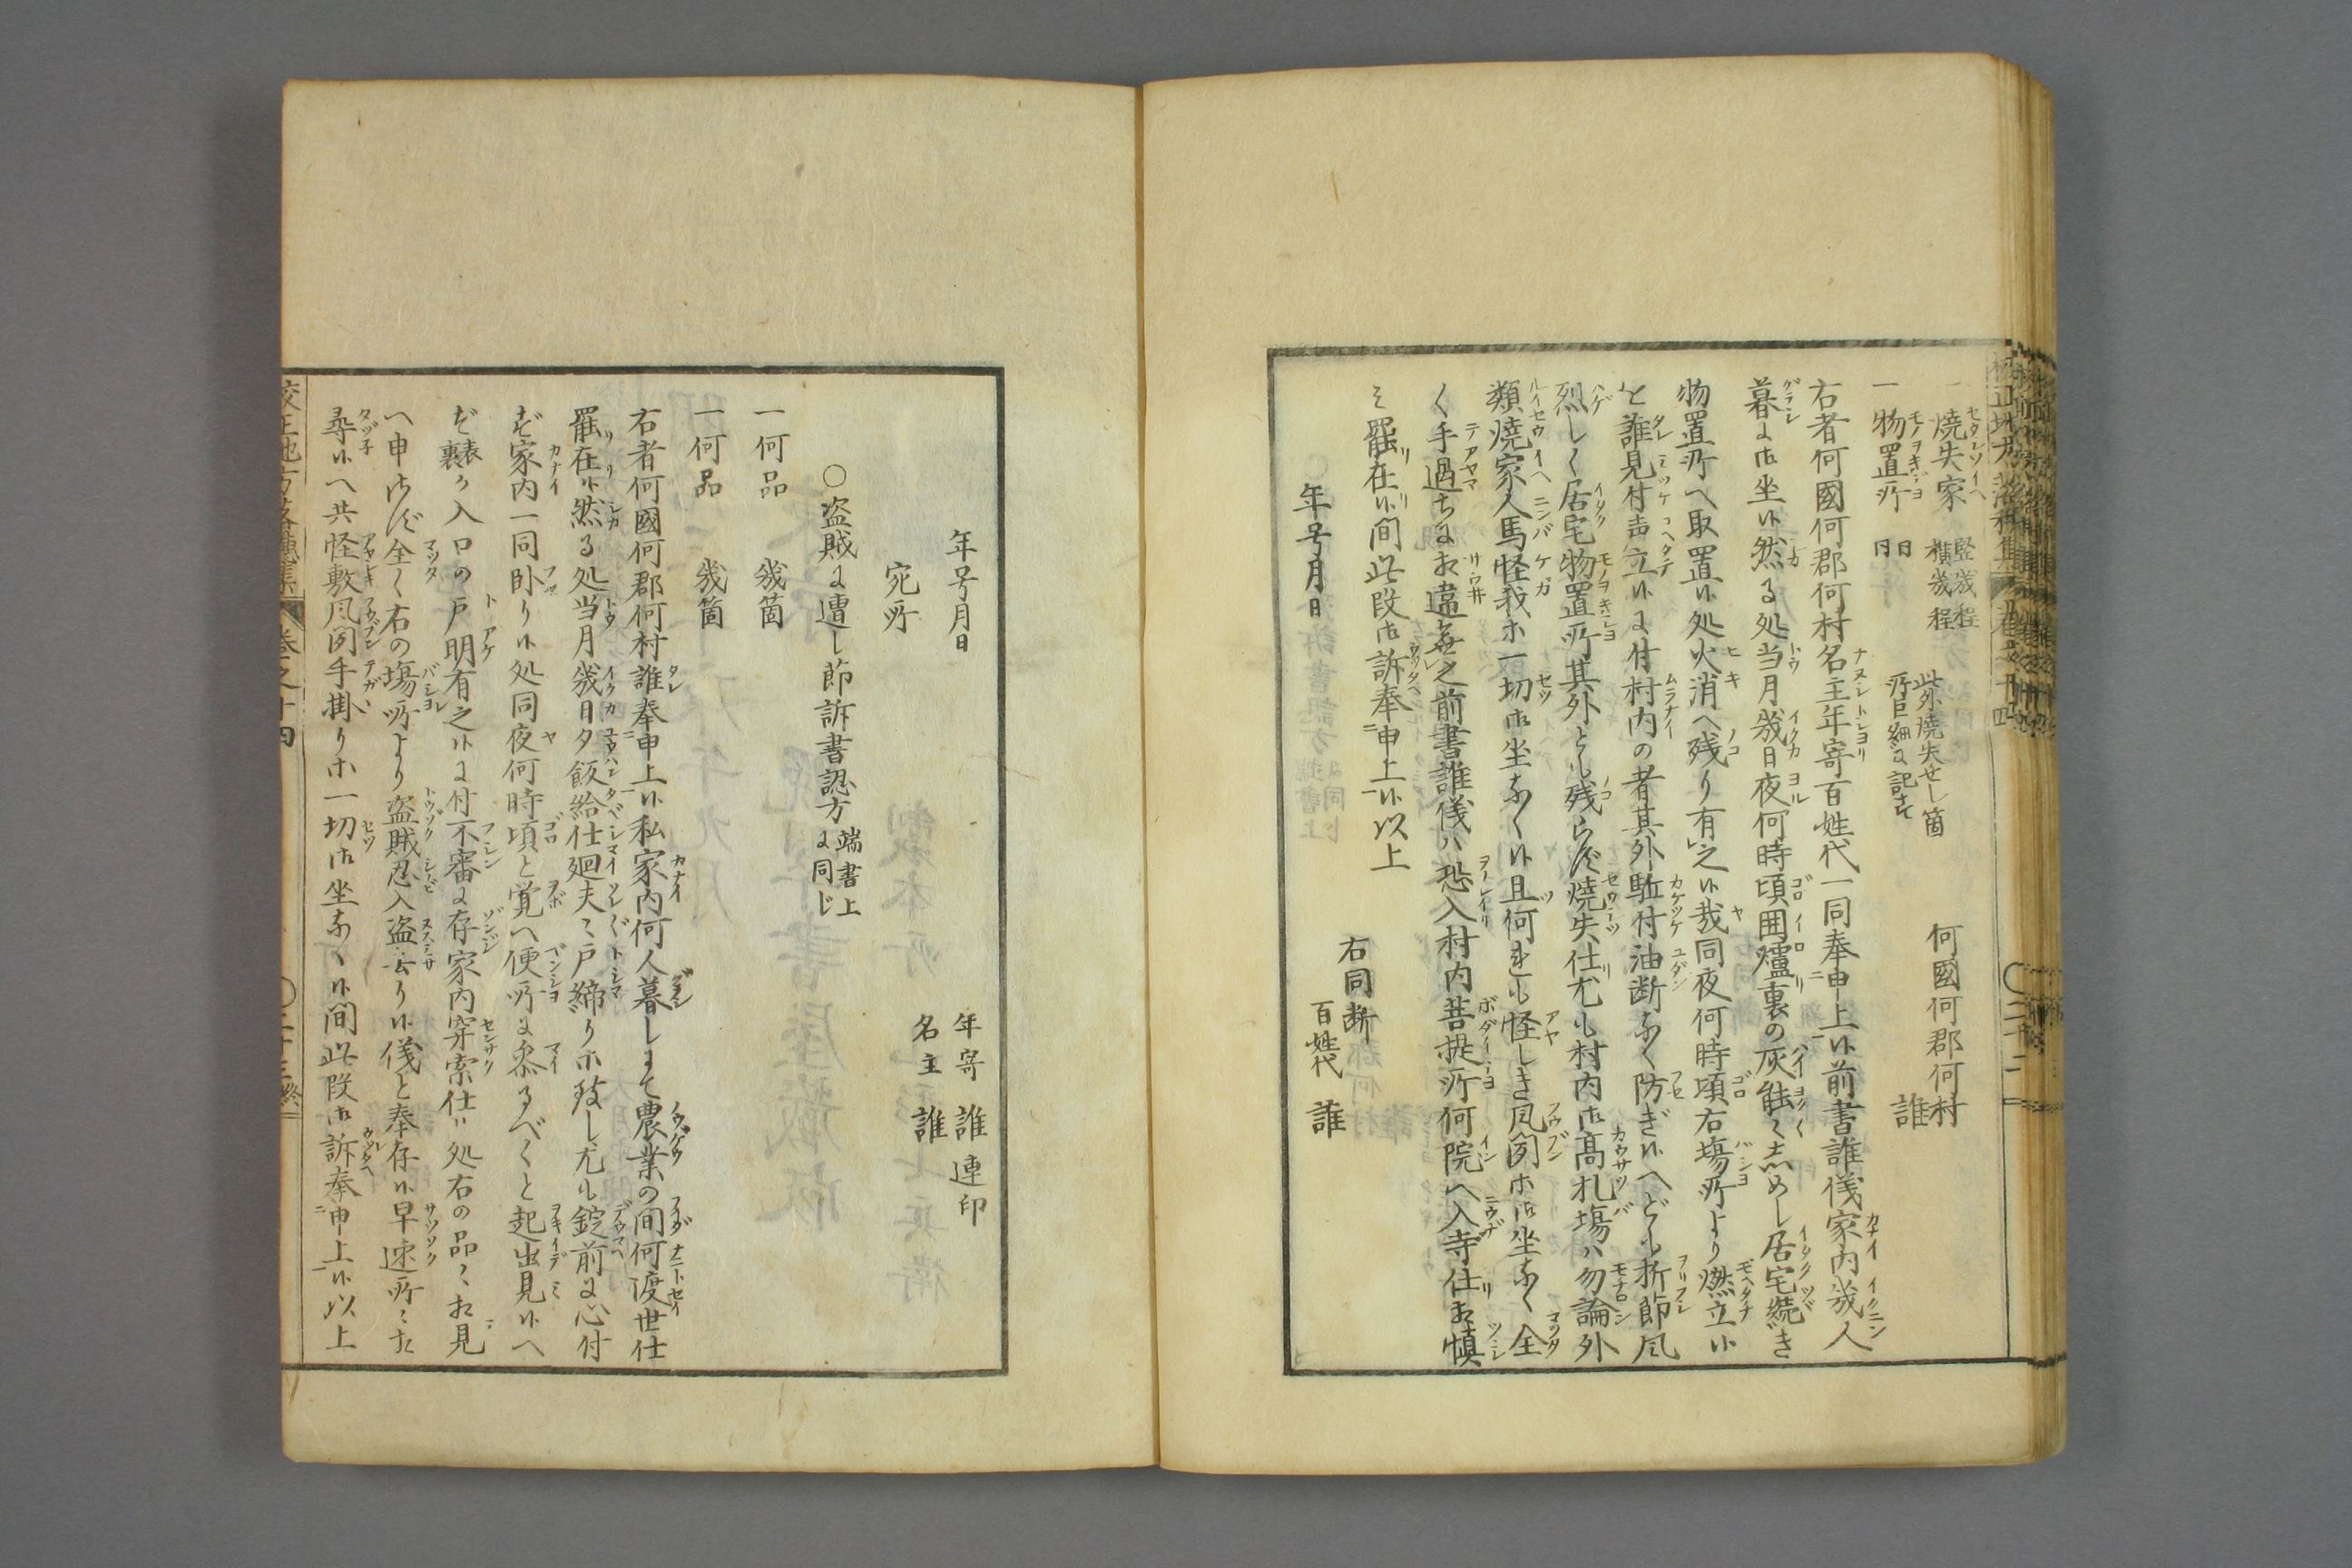 一 燒失家 竪幾程 横幾程 此外燒失せし箇 何國何郡何村
一 物置所 同 同 所巨細に記す 誰
右者何國何郡何村名主年寄百姓代一同奉申上候前書誰儀家内幾人
暮に御坐候然る処当月幾日夜何時頃囲爐裏の灰能く志めし居宅続き
物置所へ取置候処火消へ残り有之候哉同夜何時頃右場所より燃立候
と誰見付声立候に付村内の者其外駈付油断なく防ぎ候へども折節風
烈しく居宅物置所其外とも残らず燒失仕尤も村内御高札場ハ勿論外
類燒家人馬怪我等一切御坐なく候且何にても怪しき風聞等御坐なく全
く手過ちにお違無之前書誰儀ハ恐入村内菩提所何院へ入寺仕お慎
ミ罷在候間此段御訴奉申上候以上
右同断
年号月日 百姓代 誰
年号月日 年寄 誰 連印
宛所 名主 誰
○盗賊に遭し節訴書認方 端書上に同じ
一何品 幾箇
一何品 幾箇
右者何國何郡何村誰奉申上候私家内何人暮しにて農業の間何渡世仕
罷在候然る処当月幾日夕飯給仕廻夫々戸締り等致し尤も錠前に心付
ず家内一同卧り候処同夜何時頃と覚へ便所に参るべくと起出見候へ
ば表裏か入口の戸明有之候に付不審に存家内穿索仕候処右の品々お見
へ申さず全く右の場所より盗賊忍入盗去り候儀と奉存候早速所々お
尋候へ共怪敷風聞手掛り等一切御坐なく候間此段御訴奉申上候以上
巻之十四